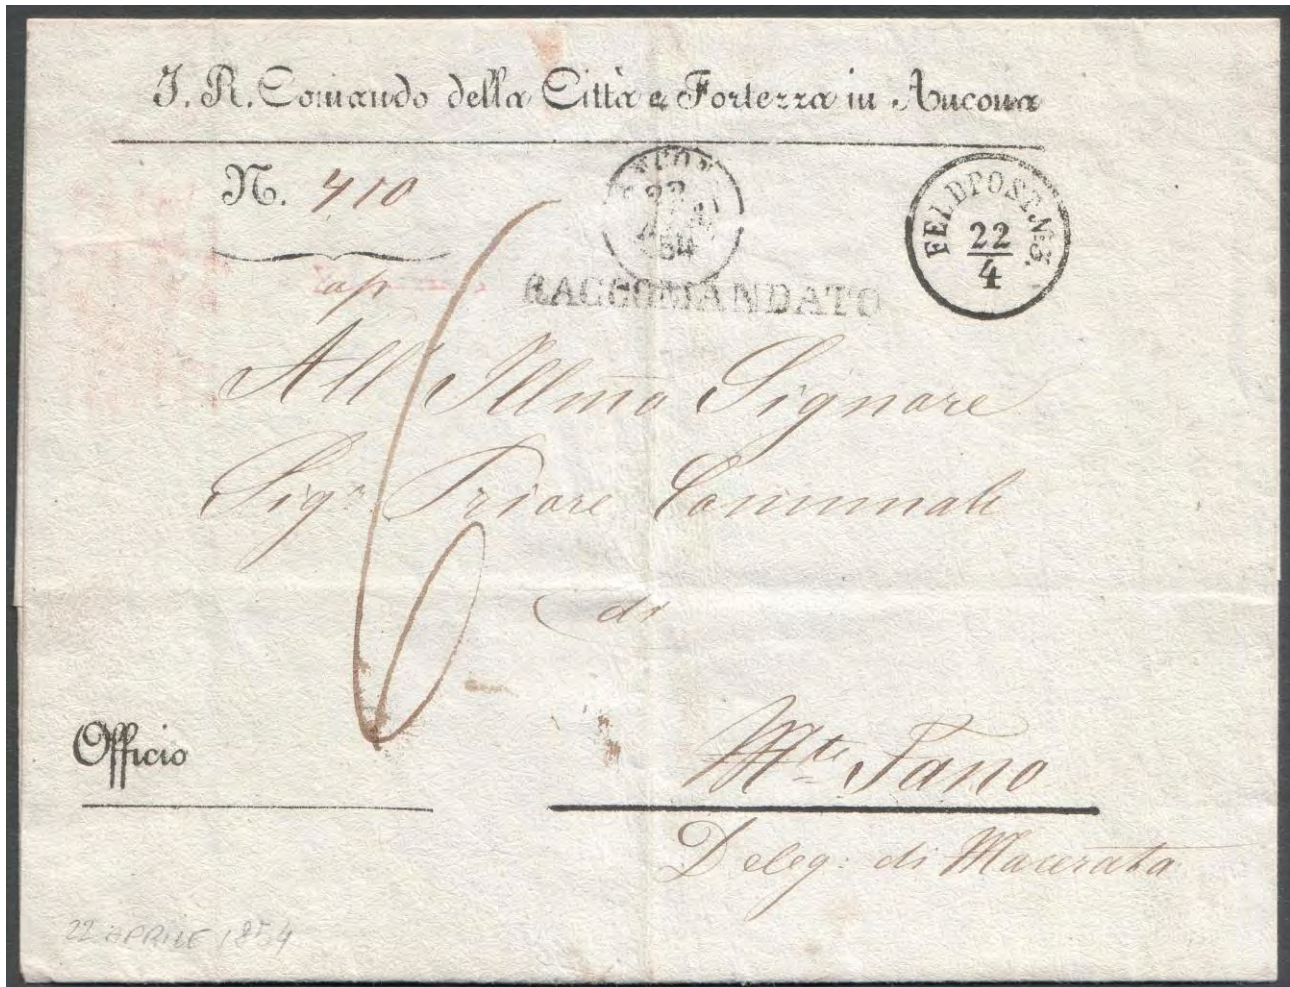 I. R. Comando della Città e Fortezza in Ancona
N. 410
ANCONA
22
54
FELDPOST. No. 3.
22
4
RAGCOMANDATO
6
All' Illmo Signore
Sigr. Priore Comunale
di
Officio
Mte Fano
Deleg: di Macerata
22 APRILE 1854